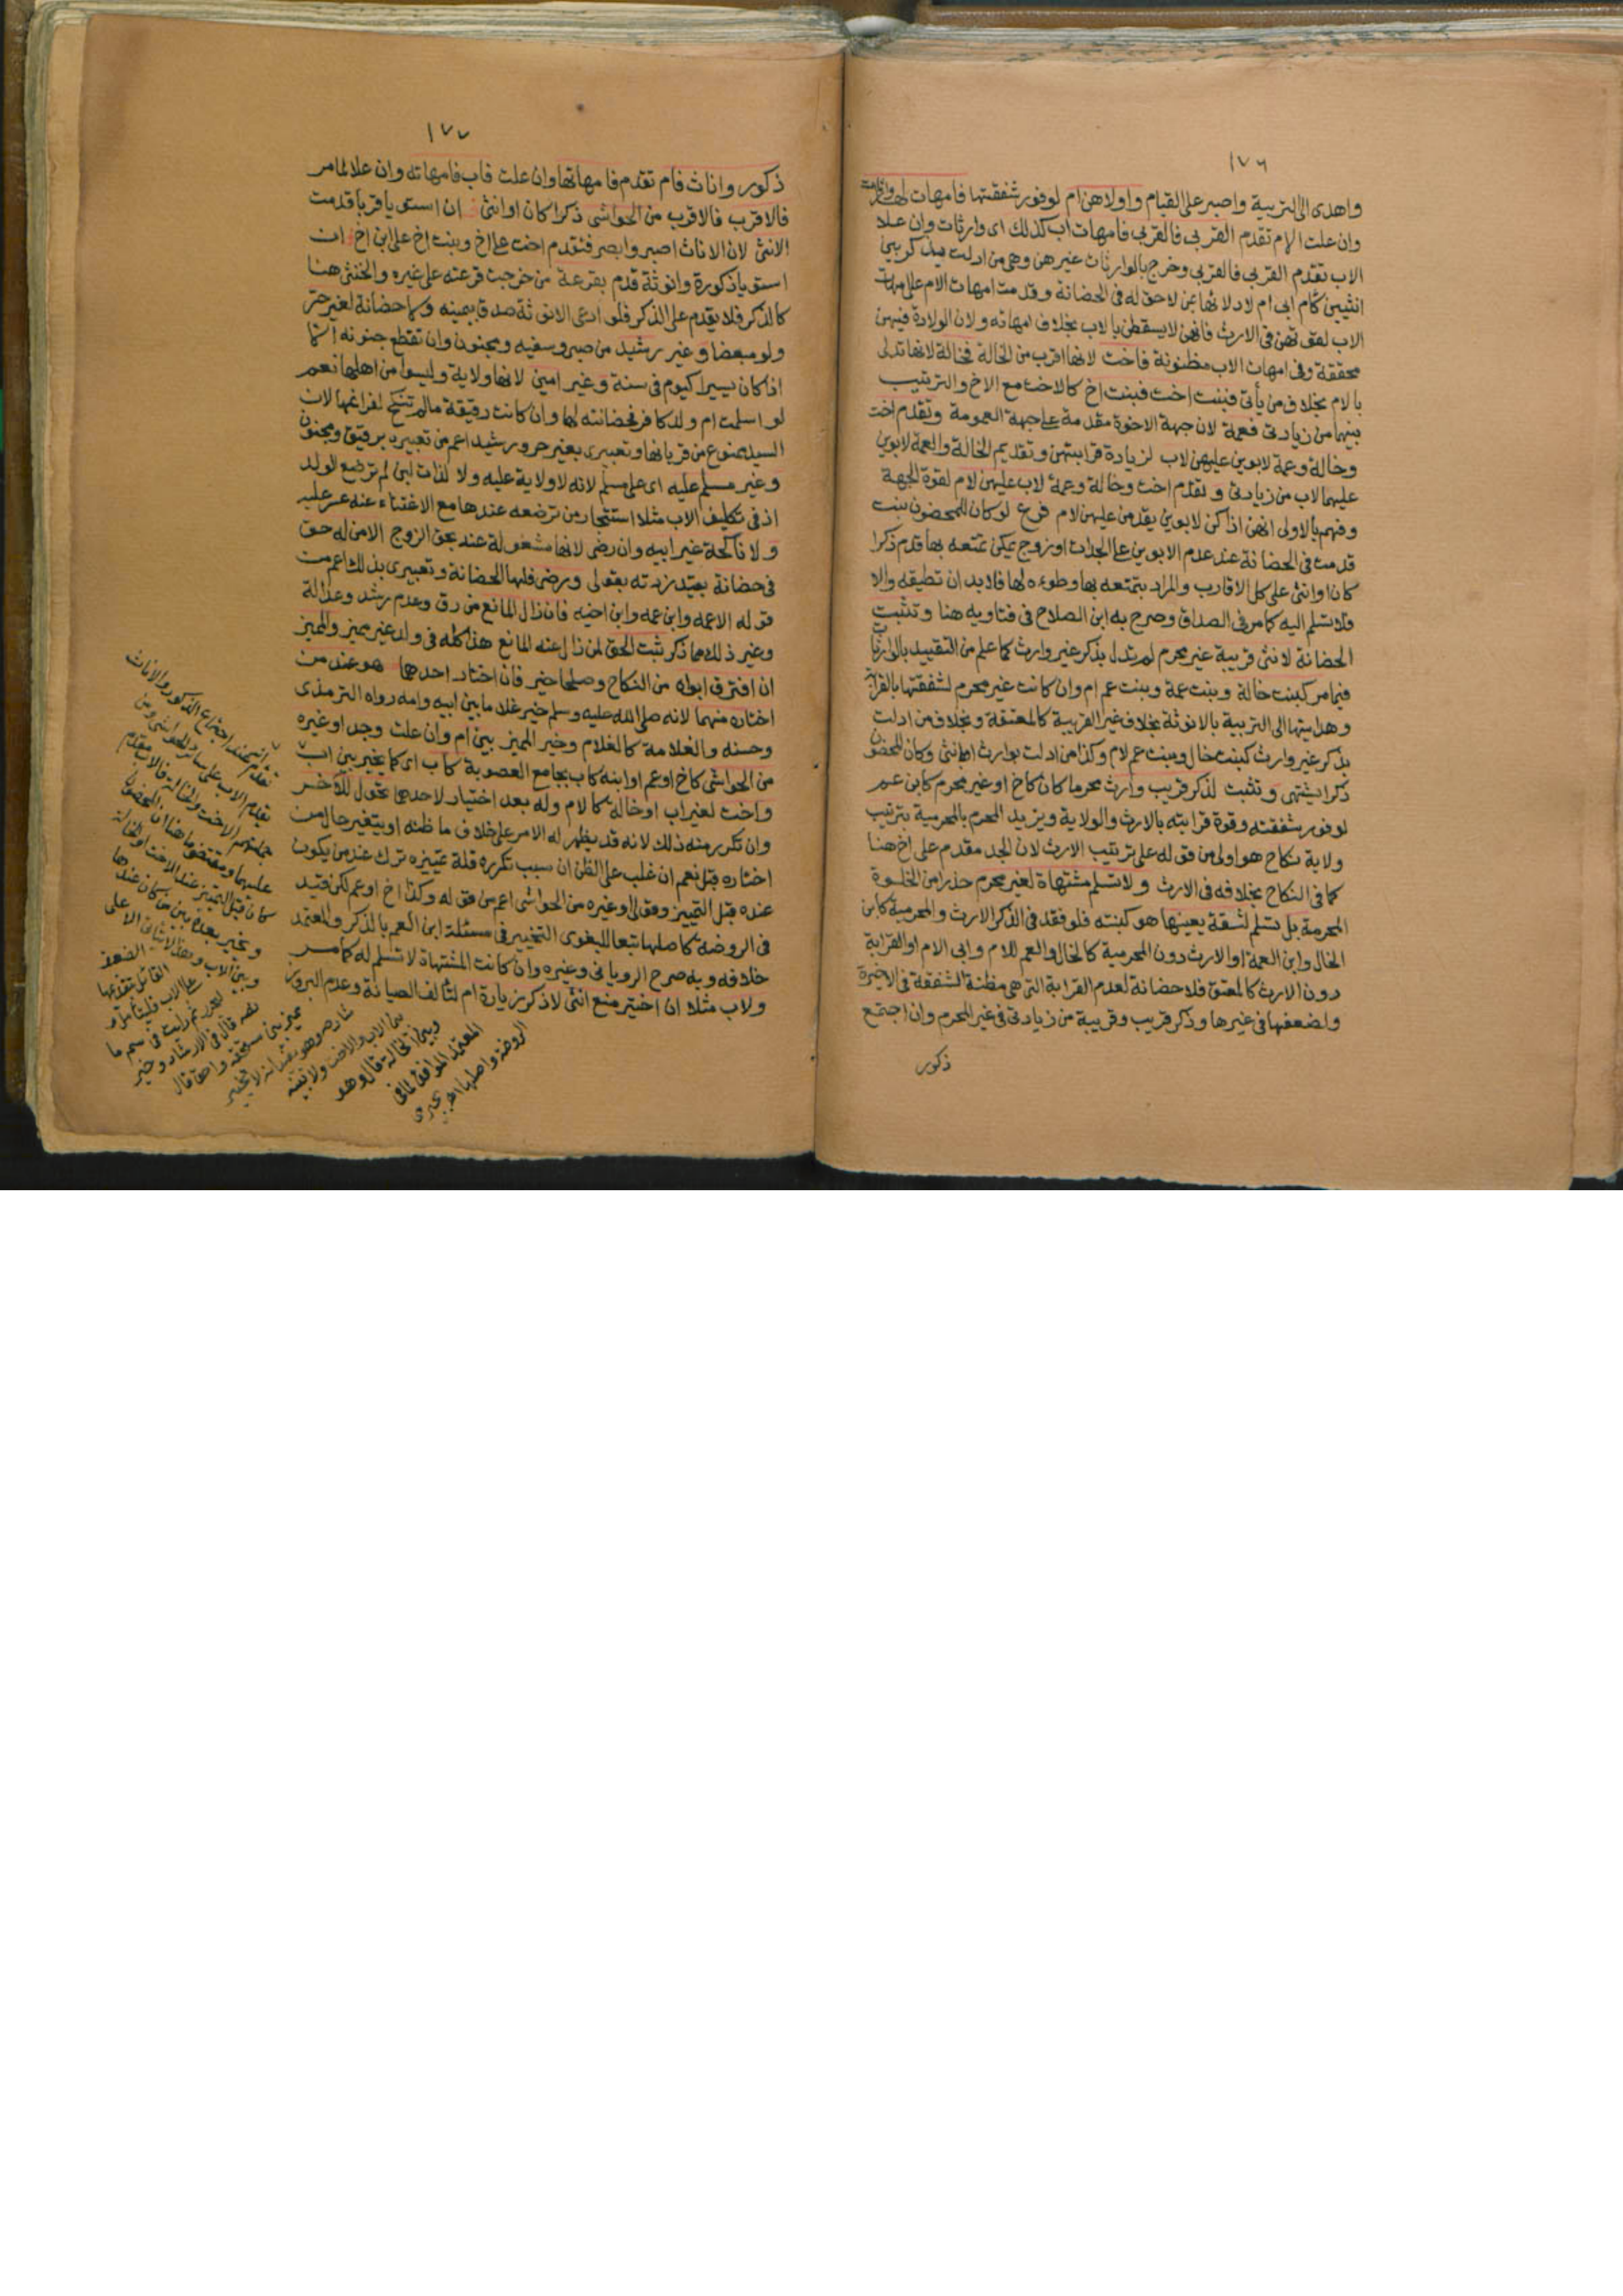 ١٧٦
واهدى الى التربية واصبر على القيام واولاهن ام لوفور شفقتها فامهات لها وارثات
وان علت الام تقدم القربى فالقربى فامهات اب كذلك اى وارثات وان علا
الاب تقدم القربى فالقربى وخرج بالوارثات غيرهن وهى من ادلت بذكر بين
انثيين كام ابى ام لادلائها بمن لا حق له فى الحضانة وقدمت امهات الام على امهات
الاب لقوتهن فى الارث فانهن لا يسقطن بالاب بخلاف امهاته ولان الولادة فيهن
محققة وفى امهات الاب مظنونة فاخت لانها اقرب من الخالة فخالة لانها تدلى
بالام بخلاف من يأتى فبنت اخت فبنت اخ كالاخت مع الاخ والترتيب
بينهما من زيادتى فعمة لان جهة الاخوة مقدمة على جهة العمومة وتقدم اخت
وخالة وعمة لابوين عليهن لاب لزيادة قرابتهن وتقديم الخالة والعمة لابوين
عليهما لاب من زيادتى وتقدم اخت وخالة وعمة لاب عليهن لام لقوة الجهة
وفهم بالاولى انهن اذا كن لابوين يقدمن عليهن لام فرع لو كان للمحضون بنت
قدمت فى الحضانة عند عدم الابوين على الجدات او زوج يمكن تمتعه بها قدم ذكرا
كان او انثى على كل الاقارب والمراد بتمتعه بها وطؤه لها فلا بد ان تطيقه والا
فلا تسلم اليه كما مر فى الصداق وصرح به ابن الصلاح فى فتاويه هنا وتثبت
الحضانة لانثى قريبة غير محرم لم تدل بذكر غير وارث كما علم من التقييد بالوارثات
فيما مر كبنت خالة وبنت عمة وبنت عم لام وان كانت غير محرم لشفقتها بالقرابة
وهدايتها الى التربية بالانوثة بخلاف غير القريبة كالمعتقة وبخلاف من ادلت
بذكر غير وارث كبنت خال وبنت عم لام وكذا من ادلت بوارث او بانثى وكان المحضون
ذكرا يشتهى وتثبت لذكر قريب وارث محرما كان كاخ او غير محرم كابن عم
لوفور شفقته وقوة قرابته بالارث والولاية ويزيد المحرم بالمحرمية بترتيب
ولاية نكاح هو اولى من قوله على ترتيب الارث لان الجد مقدم على اخ هنا
كما فى النكاح بخلافه فى الارث ولا تسلم مشتهاة لغير محرم حذرا من الخلوة
المحرمة بل تسلم لثقة يعينها هو كبنته فلو فقد فى الذكر الارث والمحرمية كابن
الخال وابن العمة او الارث دون المحرمية كالخال والعم للام وابى الام او القرابة
دون الارث كالمعتق فلا حضانة لعدم القرابة التى هى مظنة الشفقة فى الاخيرة
ولضعفها فى غيرها وذكر قريب وقريبة من زيادتى فى غير المحرم وان اجتمع
ذكور
١٧٧
ذكور واناث فام تقدم فامهاتها وان علت فاب فامهاته وان علا لما مر
فالاقرب فالاقرب من الحواشى ذكرا كان او انثى فان استويا قربا قدمت
الانثى لان الاناث اصبر وابصر فتقدم اخت على اخ وبنت اخ على ابن اخ فان
استويا ذكورة وانوثة قدم بقرعة من خرجت قرعته على غيره والخنثى هنا
كالذكر فلا يقدم على الذكر فلو ادعى الانوثة صدق بيمينه ولا حضانة لغير حر
ولو مبعضا وغير رشيد من صبى وسفيه ومجنون وان تقطع جنونه الا
اذا كان يسيرا كيوم فى سنة وغير امين لانها ولاية وليسوا من اهلها نعم
لو اسلمت ام ولد كافر فحضانته لها وان كانت رقيقة ما لم تنكح لفراغها لان
السيد ممنوع من قربانها وتعبيرى بغير حر ورشيد اعم من تعبيره برقيق ومجنون
وغير مسلم عليه اى على مسلم لانه لا ولاية عليه ولا لذات لبن لم ترضع الولد
اذ فى تكليف الاب مثلا استئجار من ترضعه عندها مع الاغتناء عنه عسر عليه
ولا ناكحة غير ابيه وان رضى لانها مشغولة عنه بحق الزوج الا من له حق
فى حضانة بقيد زدته بقولى ورضى فلها الحضانة وتعبيرى بذلك اعم من
قوله الا عمه وابن عمه وابن اخيه فان زال المانع من رق وعدم رشد وعدالة
وغير ذلك مما ذكر ثبت الحق لمن زال عنه المانع هذا كله فى ولد غير مميز والمميز
ان افترق ابواه من النكاح وصلحا خير فان اختار احدهما هو عند من
اختاره منهما لانه صلى الله عليه وسلم خير غلاما بين ابيه وامه رواه الترمذى
وحسنه والغلامة كالغلام وخير المميز بين ام وان علت وجد او غيره
من الحواشى كاخ او عم او ابنه كاب بجامع العصوبة كاب اى كما يخير بين اب
واخت لغير اب او خالة كالام وله بعد اختيار لاحدهما تحول للآخر
وان تكرر منه ذلك لانه قد يظهر له الامر على خلاف ما ظنه او يتغير حال من
اختاره قبل نعم ان غلب على الظن ان سبب تكرره قلة تمييزه ترك عند من يكون
عنده قبل التمييز وقولى او غيره من الحواشى اعم من قوله وكذا اخ او عم لكن قيد
فى الروضة كاصلها تبعا للبغوى التخيير فى مسئلة ابن العم بالذكر والمعتمد
خلافه وبه صرح الرويانى وغيره وان كانت المشتهاة لا تسلم له كما مر
ولاب مثلا ان اختير منع انثى لا ذكر زيارة ام لتألف الصيانة وعدم البروز
تقدم الاب على سائر الحواشى ومن
جملتهم الاخت والخالة فالاب مقدم
عليهما ومقتضى ما هنا ان المحضون
كان قبل التمييز عند الاخت او الخالة
ويخير بعده بين من كان عندها
وبين الاب